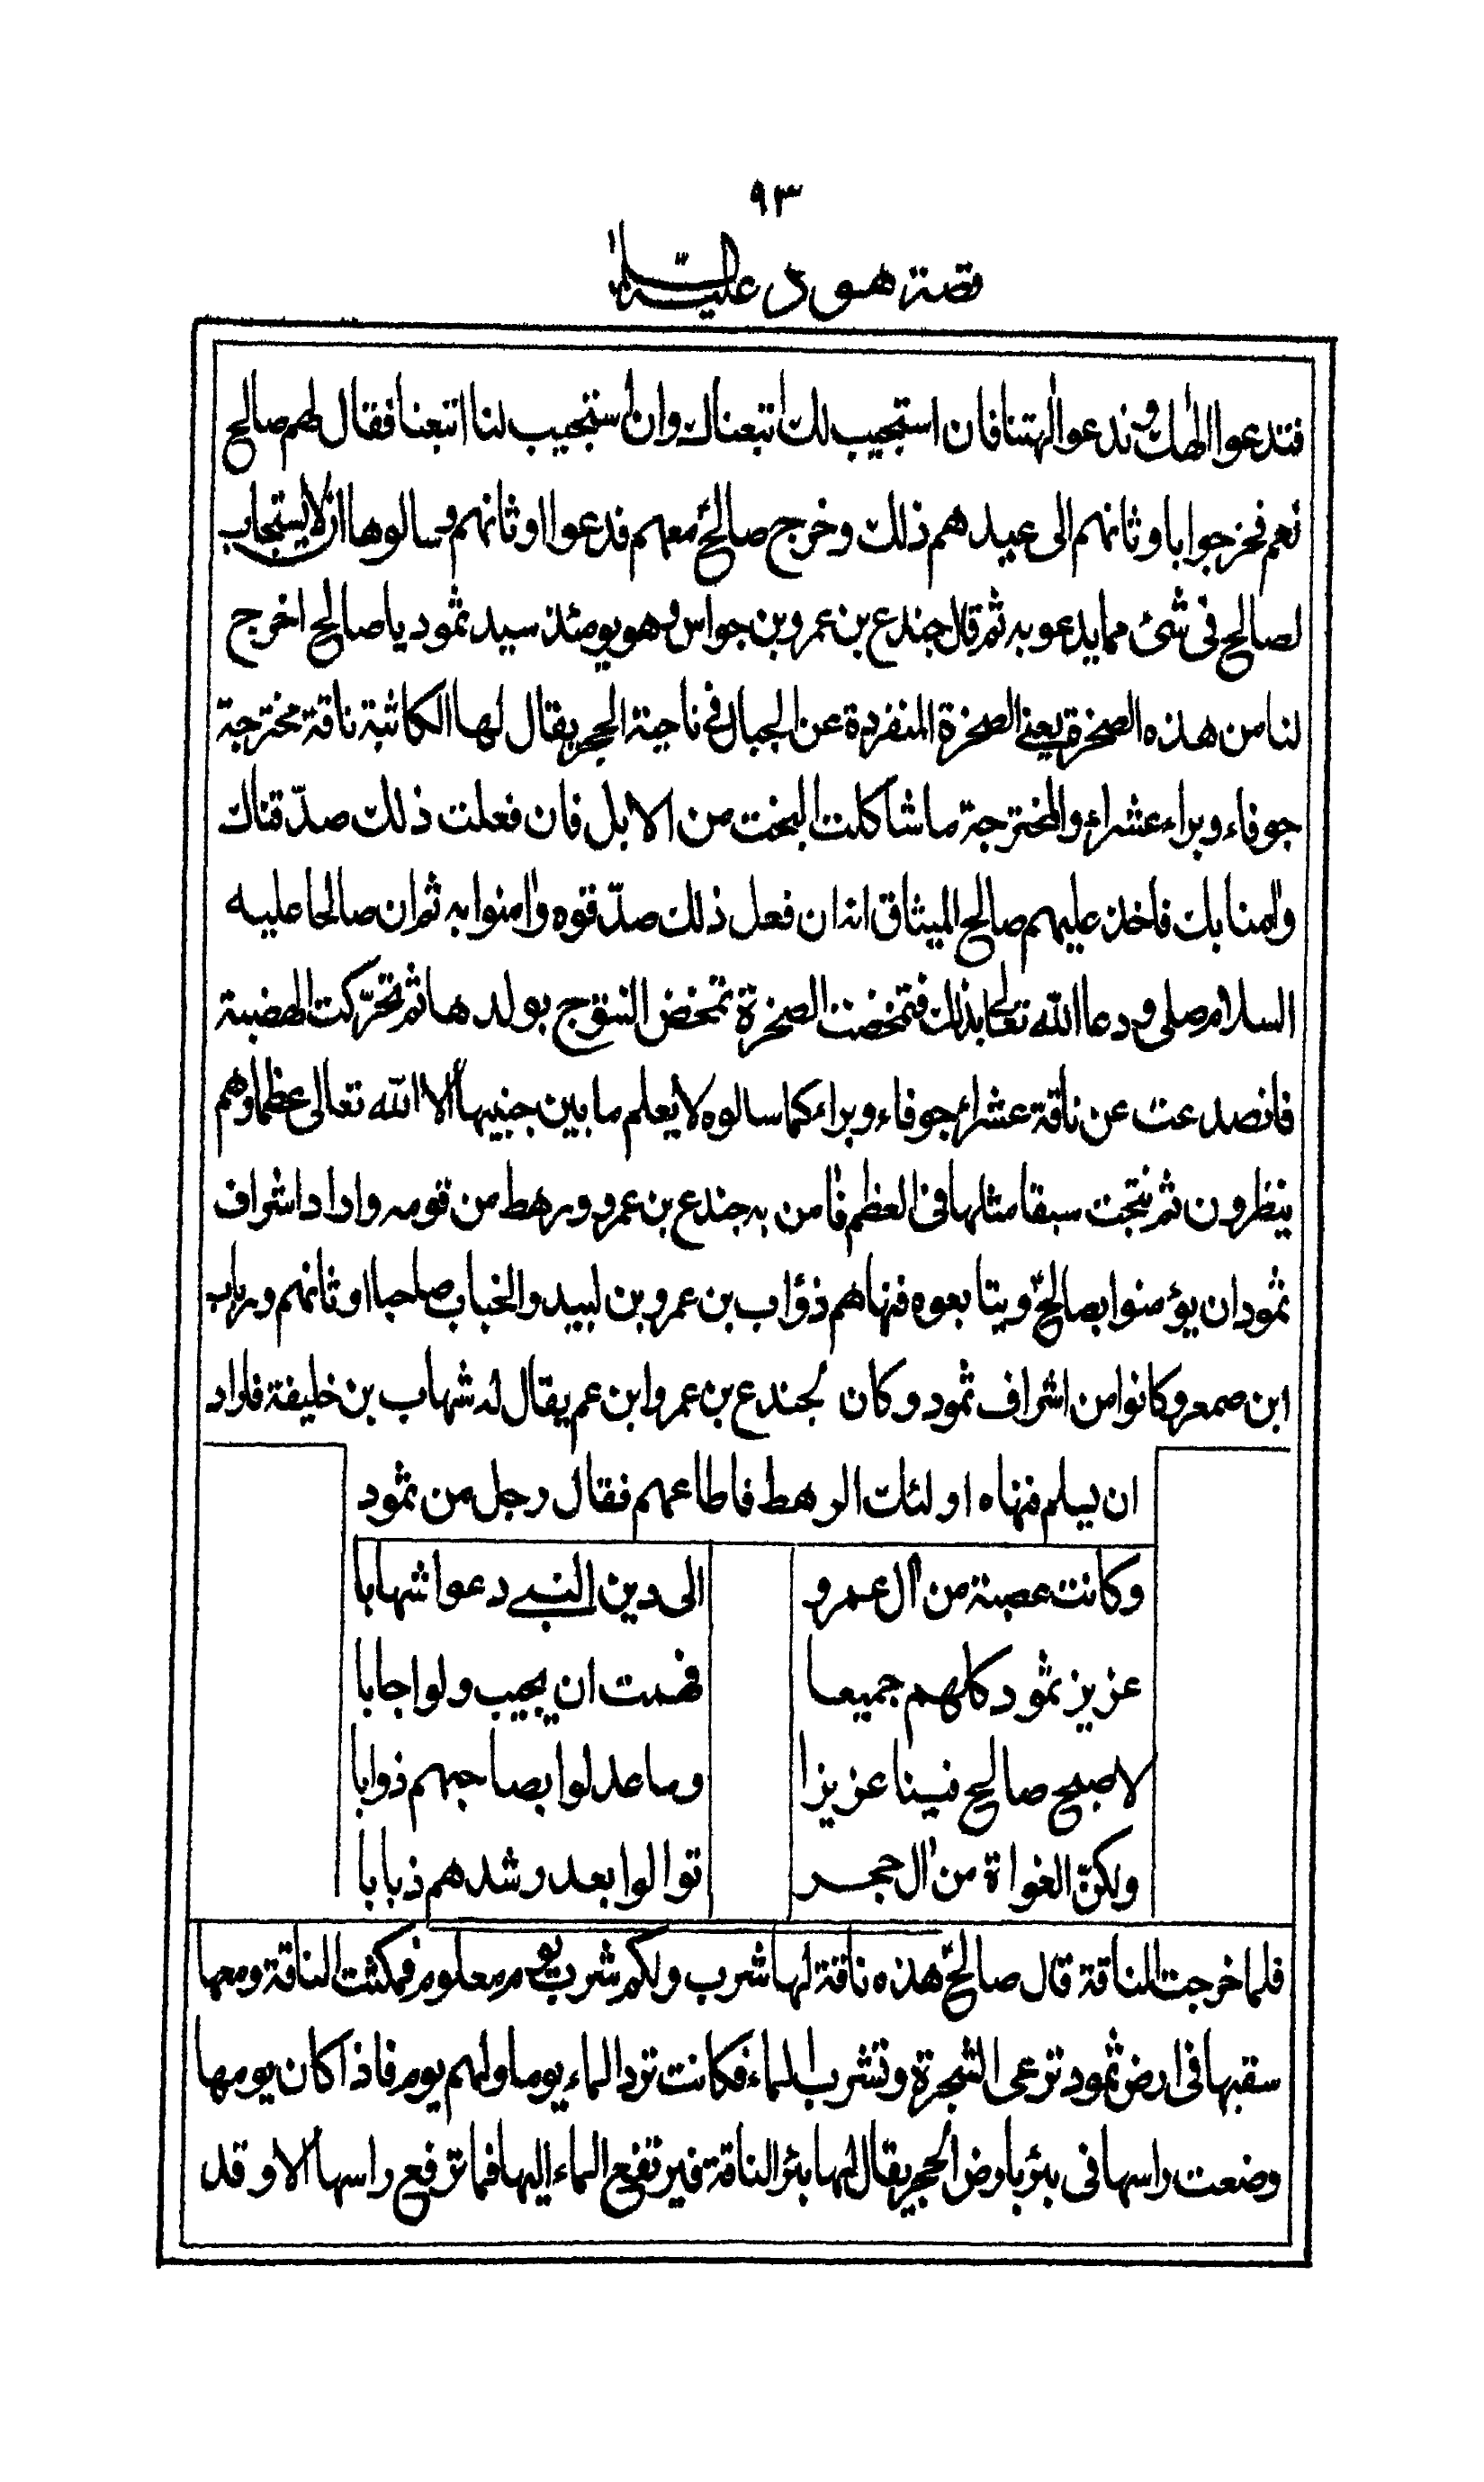 ٩٣
قصة هود عليه السلام
فتدعوا الٰهك وندعوا اٰلهتنا فان استجيب لك اتبعناك وان استجيب لنا اتبعنا فقال لهم صالح
نعم فخرجوا باوثانهم الى عيدهم ذلك وخرج صالحؑ معهم فدعوا اوثانهم وسالوها ان لا يستجاب
لصالح فى شئ مما يدعو به ثم قال جندع بن عمرو بن جواس وهو يومئذ سيد ثمود يا صالح اخرج
لنا من هذه الصخرة يعنى الصخرة المنفردة عن الجبال فى ناحية الحجر يقال لها الكاثبة ناقة مخترجة
جوفاء وبراء عشراء والمخترجة ما شاكلت البخت من الابل فان فعلت ذلك صدّقناك
واٰمنا بك فاخذ عليهم صالح الميثاق انه ان فعل ذلك صدّقوه واٰمنوا به ثم ان صالحا عليه
السلام صلى ودعا الله تعالى بذلك فتمخضت الصخرة تمخض النتوج بولدها ثم تحرّكت الهضبة
فانصدعت عن ناقة عشراء جوفاء وبراء كما سالوه لا يعلم ما بين جنبيها الا الله تعالى عظما وهم
ينظرون ثم نتجت سبقا مثلها فى العظم فاٰمن به جندع بن عمرو ورهط من قومه واراد اشراف
ثمود ان يؤمنوا بصالحؑ ويتابعوه فنهاهم ذؤاب بن عمرو بن لبيد والخباب صاحبا اوثانهم ورباب
ابن صمعر وكانوا من اشراف ثمود وكان لجندع بن عمرو ابن عم يقال له شهاب بن خليفة فاراد
ان يسلم فنهاه اولئك الرهط فاطاعهم فقال رجل من ثمود
وكانت عصبة من اٰل عمرو الى دين النبى دعوا شهابا
عزيز ثمود كلهم جميعا فهمت ان يجيب ولو اجابا
لاصبح صالح فينا عزيزا وما عدلوا بصاحبهم ذوابا
ولكنّ الغواة من اٰل حجر توالوا بعد رشدهم ذبابا
فلما خرجت الناقة قال صالحؑ هذه ناقة لها شرب ولكم شرب يوم معلوم فمكثت الناقة ومعها
سقبها فى ارض ثمود ترعى الشجرة وتشرب الماء فكانت ترد الماء يوما ولهم يوم فاذا كان يومها
وضعت راسها فى بئر بارض الحجر يقال لها بئر الناقة فيرتفع الماء اليها فما ترفع راسها الا وقد